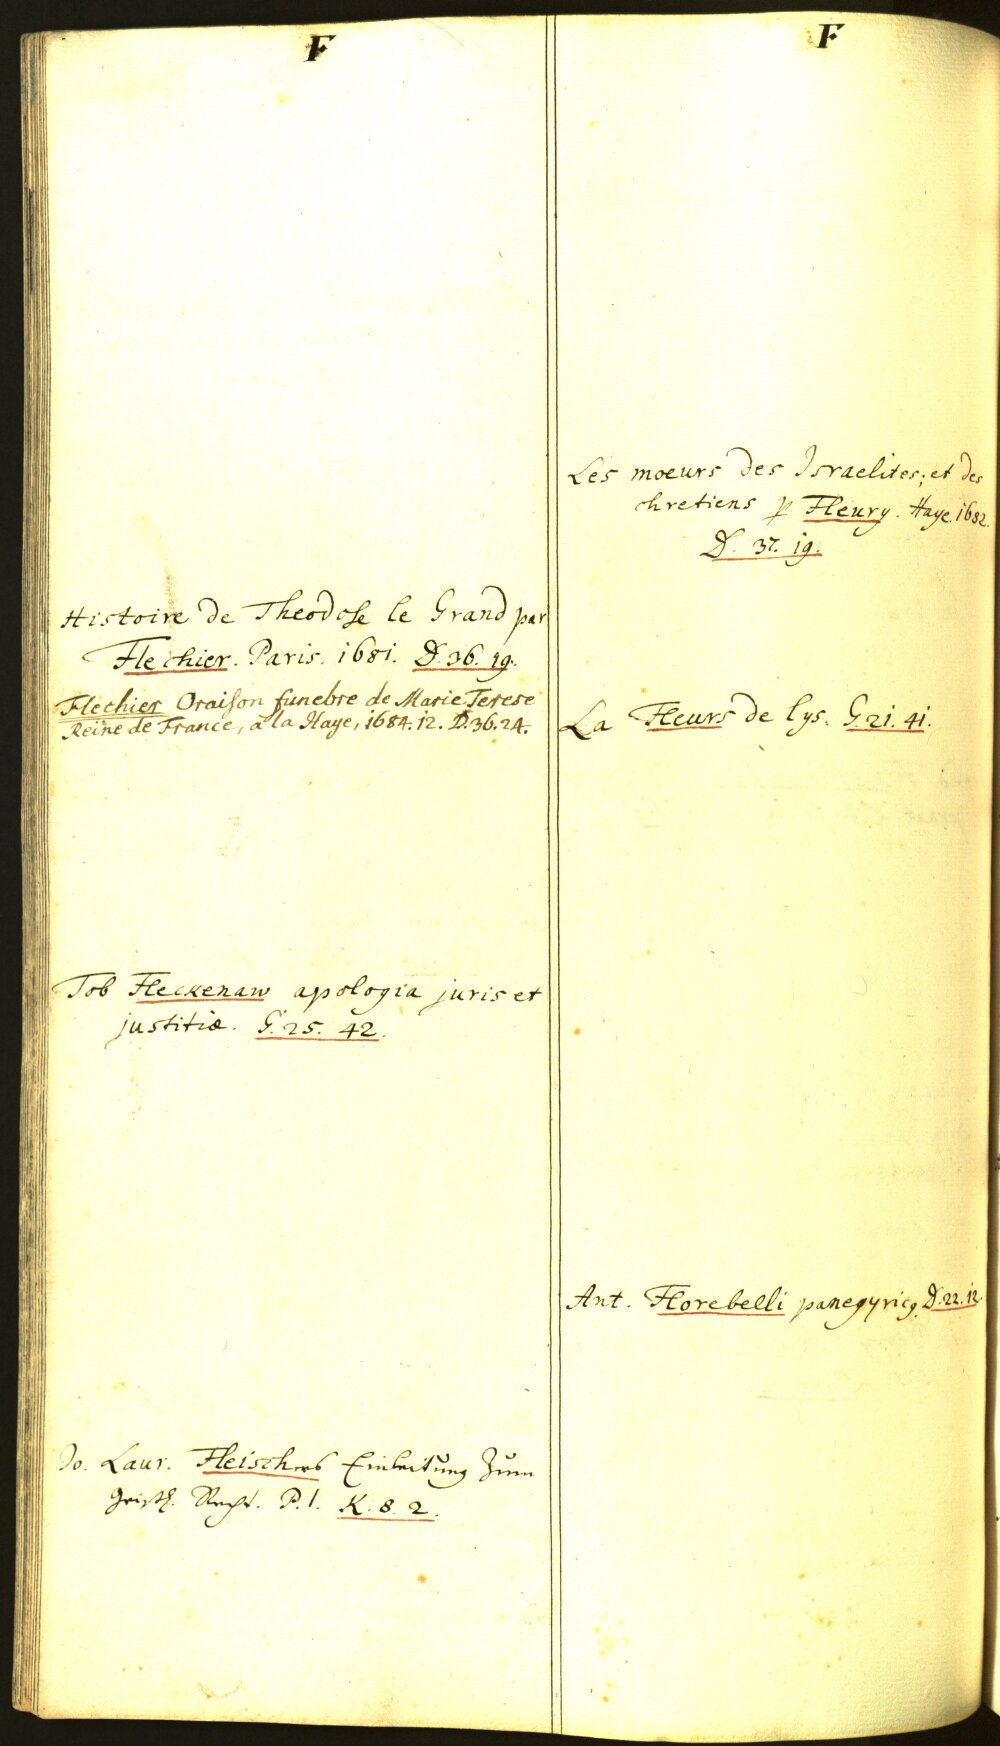 F
Histoire de Theodose le Grand par
Flechier. Paris. 1681. D. 36. 19.
Flechier Oraison funebre de Marie Terese
Reine de France, à la Haye, 1684. 12. D. 36. 24.
Tob Fleckenaw apologia juris et
justitiæ. G. 25. 42.
Jo. Laur. Fleischers Einleitung zum
Geistl. Recht. P. 1. K. 8. 2.
F
Les moeurs des Israelites; et des
chretiens p Fleury. Haye. 1682.
D. 37. 19.
La Fleurs de lys. G. 21. 41.
Ant. Florebelli panegyricq. D. 22. 12.